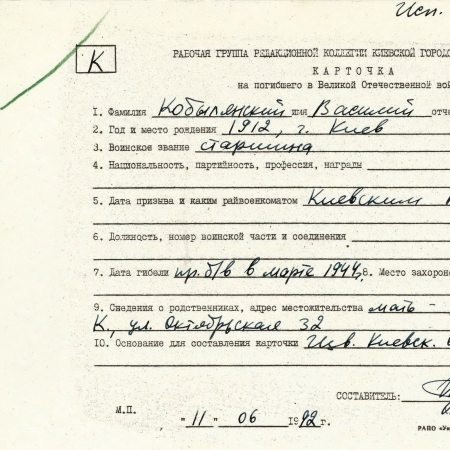 Исп.
К
РАБОЧАЯ ГРУППА РЕДАКЦИОННОЙ КОЛЛЕГИИ КИЕВСКОЙ ГОРОДС
КАРТОЧКА
на погибшего в Великой Отечественной вой
1. Фамилия Кобылянский имя Василий отче
2. Год и место рождения 1912, г. Киев
3. Воинское звание старшина
4. Национальность, партийность, профессия, награды
5. Дата призыва и каким райвоенкоматом Киевским
6. Должность, номер воинской части и соединения
7. Дата гибели пр. б/в в марте 1944, 8. Место захороне
9. Сведения о родственниках, адрес местожительства мать -
К., ул. Октябрьская 32
10. Основание для составления карточки Изв. Киевск.
СОСТАВИТЕЛЬ:
М.П. "11" 06 1992г.
РАПО «Ук